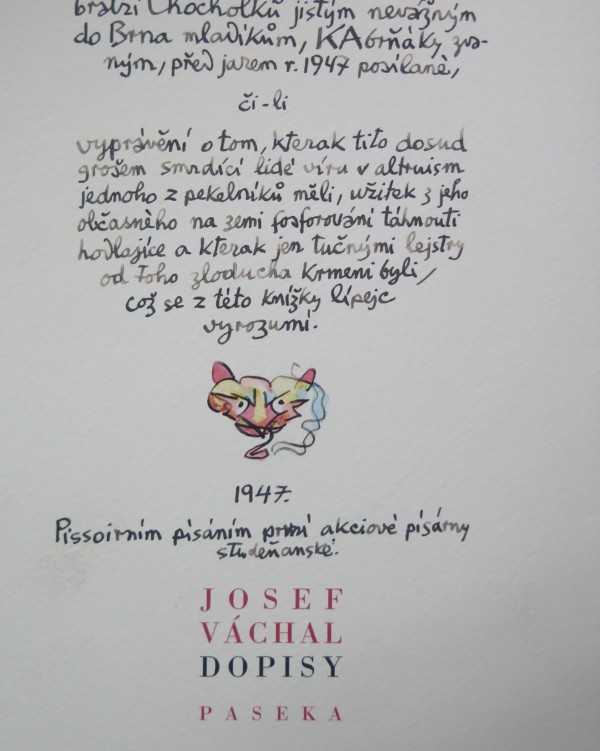 bratří Chocholků jistým nevážným
do Brna mladíkům, KAbrňáky zva-
ným, před jarem r. 1947 posílané,
či-li
vyprávění o tom, kterak tito dosud
grošem smrdící lidé víru v altruism
jednoho z pekelníků měli, užitek z jeho
občasného na zemi fosforování táhnouti
hodlajíce a kterak jen tučnými lejstry
od toho zloducha krmeni byli,
což se z této knížky lépeje
vyrozumí.
1947.
Pissoirním písáním první akciové písárny
studeňanské.
JOSEF
VÁCHAL
DOPISY
PASEKA